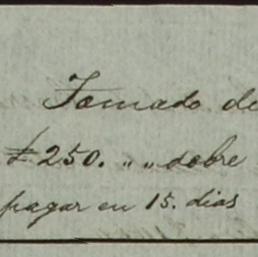 Tomado de
£250. „ „ sobre
pagar en 15. dias